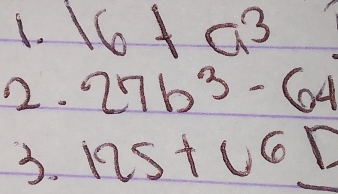 1. 16 + a³
2. 27b³ - 64
3. 125 + u⁶